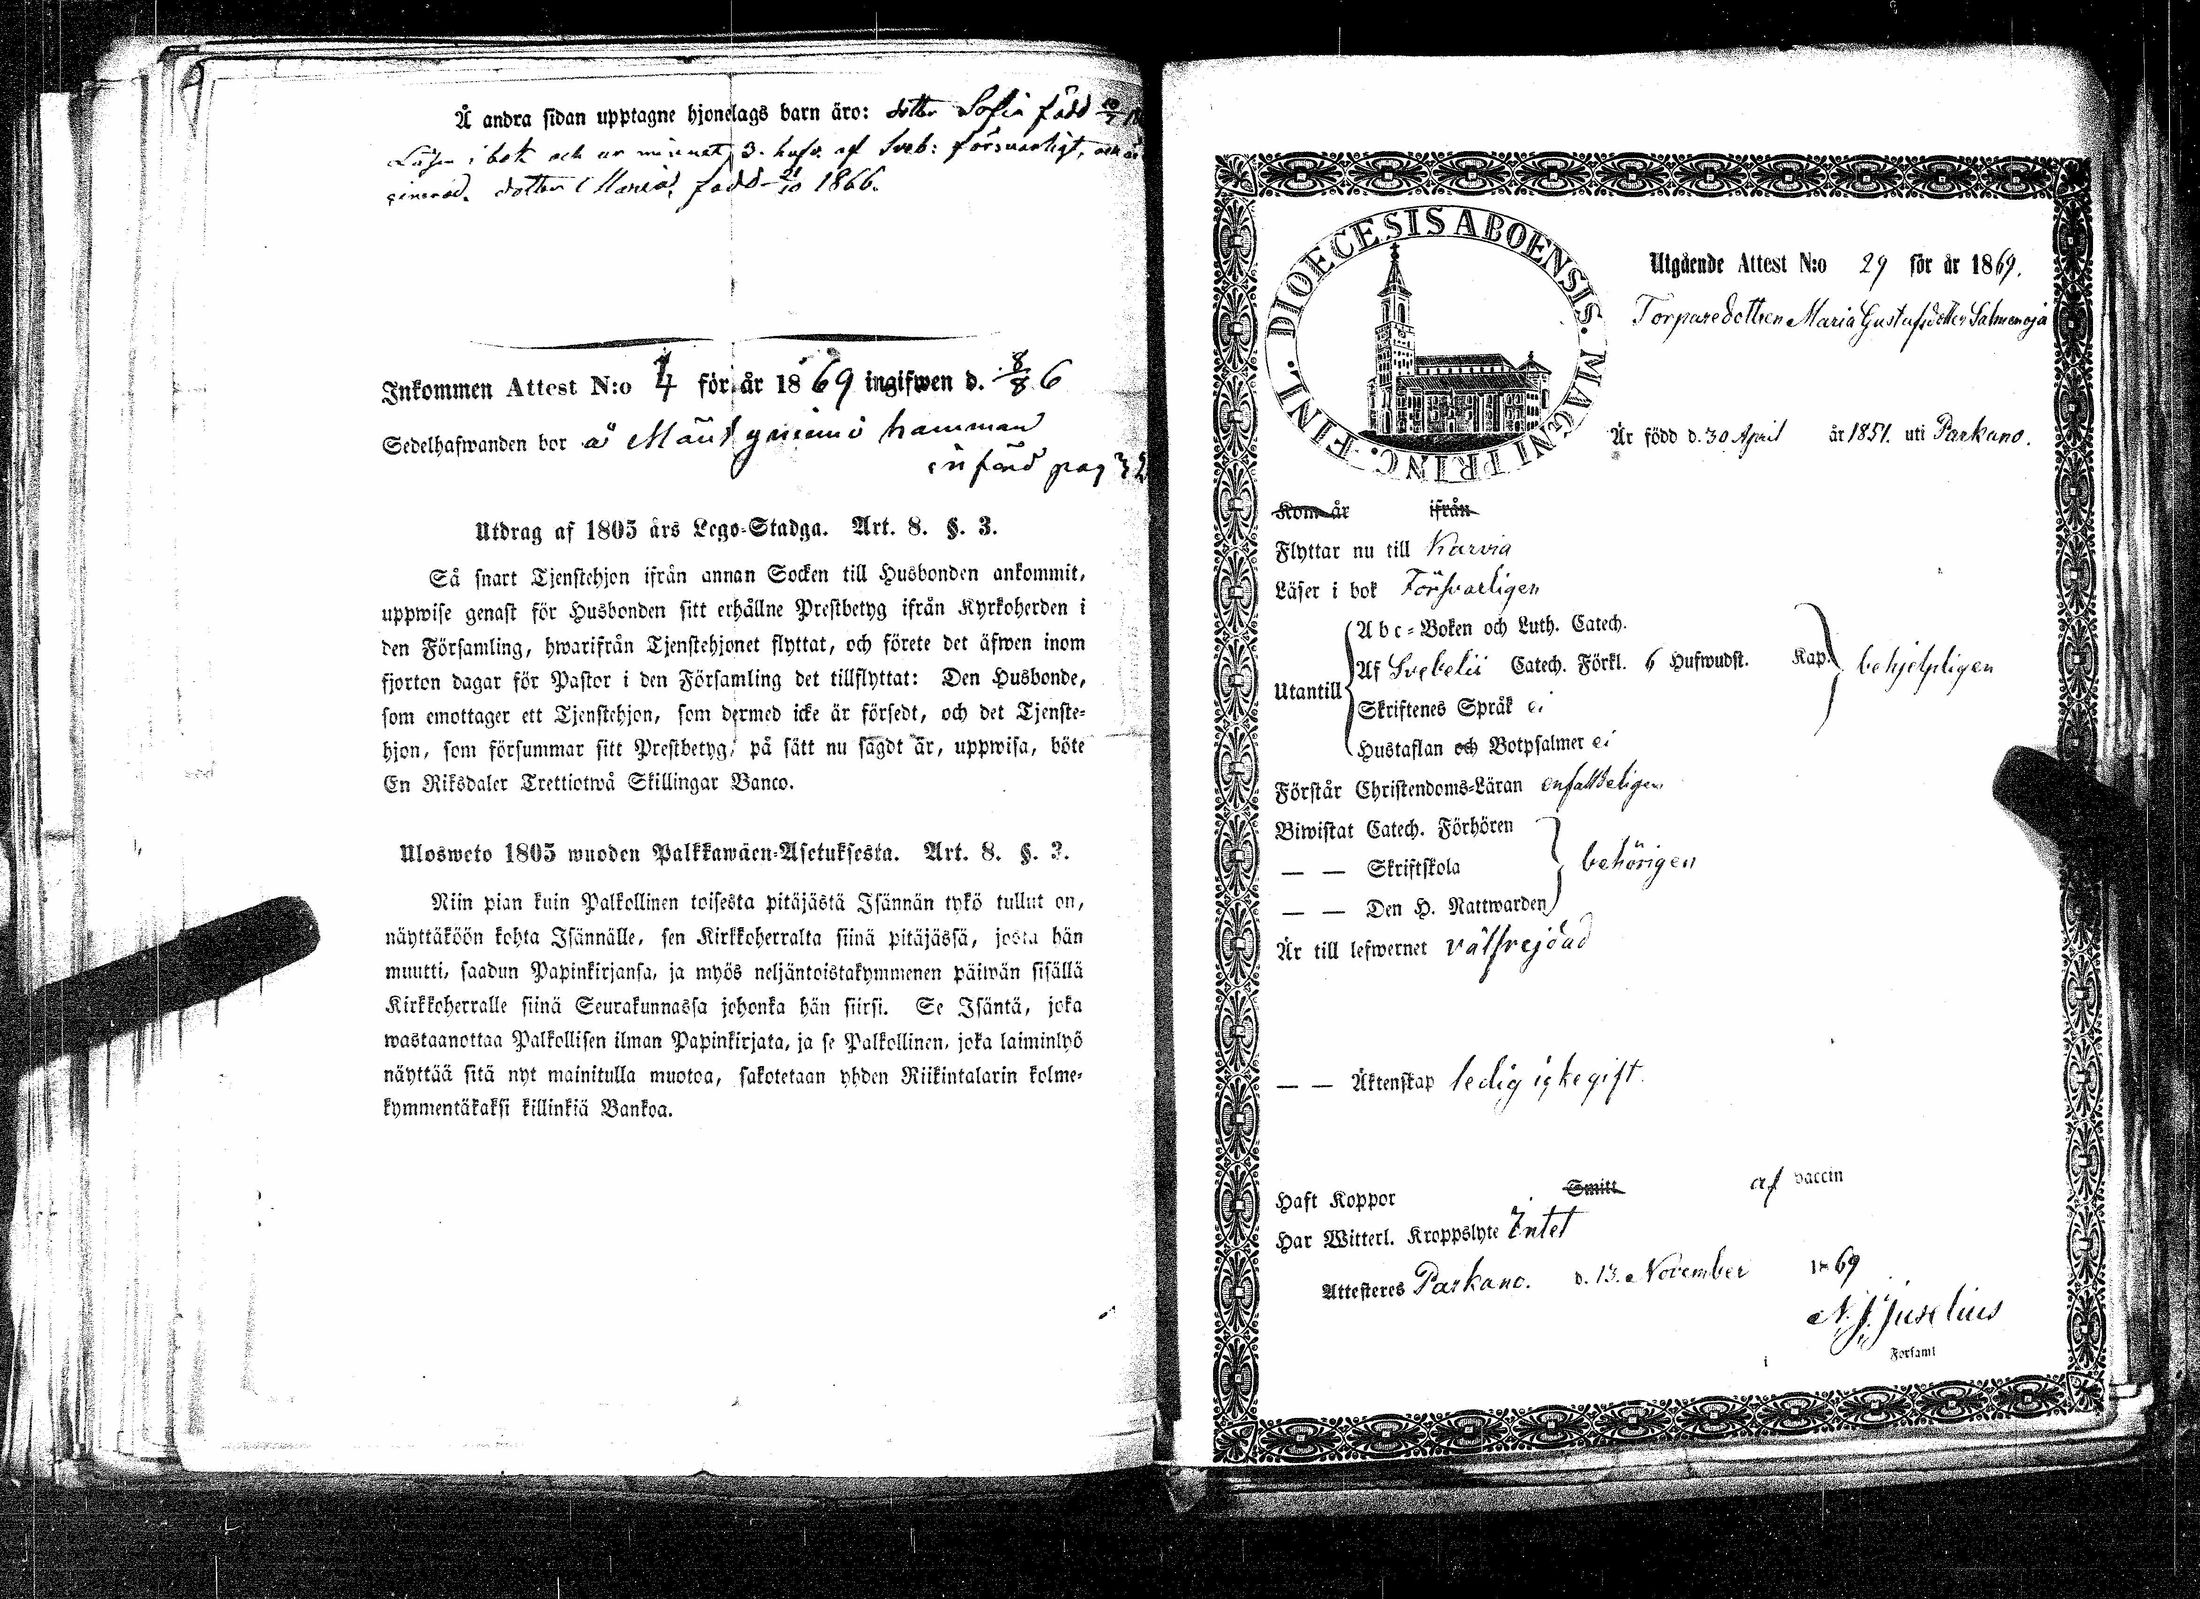 Å andra sidan upptagne hjonelags barn äro: dotter Sofia född 10/7
Läser i bok och ur minnet 3. hufv. af Sveb: försvarligt, och är
dotter Maria, född 10 1866.
Inkommen Attest N:o 4 för år 1869 ingifwen d. 8/8 6
Sedelhafwanden bor å hamman
införd pag 32
Utdrag af 1805 års Lego-Stadga. Art. 8. §. 3.
Så snart Tjenstehjon ifrån annan Socken till Husbonden ankommit,
uppwise genast för Husbonden sitt erhållne Prestbetyg ifrån Kyrkoherden i
den Församling, hwarifrån Tjenstehjonet flyttat, och förete det äfwen inom
fjorton dagar för Pastor i den Församling det tillflyttat: Den Husbonde,
som emottager ett Tjenstehjon, som dermed icke är försedt, och det Tjenste-
hjon, som försummar sitt Prestbetyg, på sätt nu sagdt är, uppwisa, böte
En Riksdaler Trettiotwå Skillingar Banco.
Ulosweto 1805 wuoden Palkkawäen-Asetuksesta. Art. 8. §. 3.
Niin pian kuin Palkollinen toisesta pitäjästä Isännän tykö tullut on,
näyttäköön kohta Isännälle, sen Kirkkoherralta siinä pitäjässä, josta hän
muutti, saadun Papinkirjansa, ja myös neljäntoistakymmenen päiwän sisällä
Kirkkoherralle siinä Seurakunnassa johonka hän siirsi. Se Isäntä, joka
wastaanottaa Palkollisen ilman Papinkirjata, ja se Palkollinen, joka laiminlyö
näyttää sitä nyt mainitulla muotoa, sakotetaan yhden Riikintalarin kolme-
kymmentäkaksi killinkiä Bankoa.
DIOECESIS ABOENSIS. MAGNI PRINC. FINL.
Utgående Attest N:o 29 för år 1869.
Torparedottren Maria Gustafsdotter Salmenoja
Är född d. 30 April år 1851. uti Parkano.
Kom år ifrån
Flyttar nu till Karvia
Läser i bok Försvarligen
Utantill
Abc-Boken och Luth. Catech.
Af Svebelii Catech. Förkl. 6 Hufwudst. Kap. behjelpligen
Skriftenes Språk ej
Hustaflan och Botpsalmer ej
Förstår Christendoms-Läran enfaldeligen
Biwistat Catech. Förhören
— — Skriftskola behörigen
— — Den H. Nattwarden
Är till lefwernet välfrejdad
— — Äktenskap ledig icke gift.
Haft Koppor Smitt af vaccin
Har Witterl. Kroppslyte Intet
Attesteres Parkano. d. 13. November 1869
N. J. Juselius
i Församl